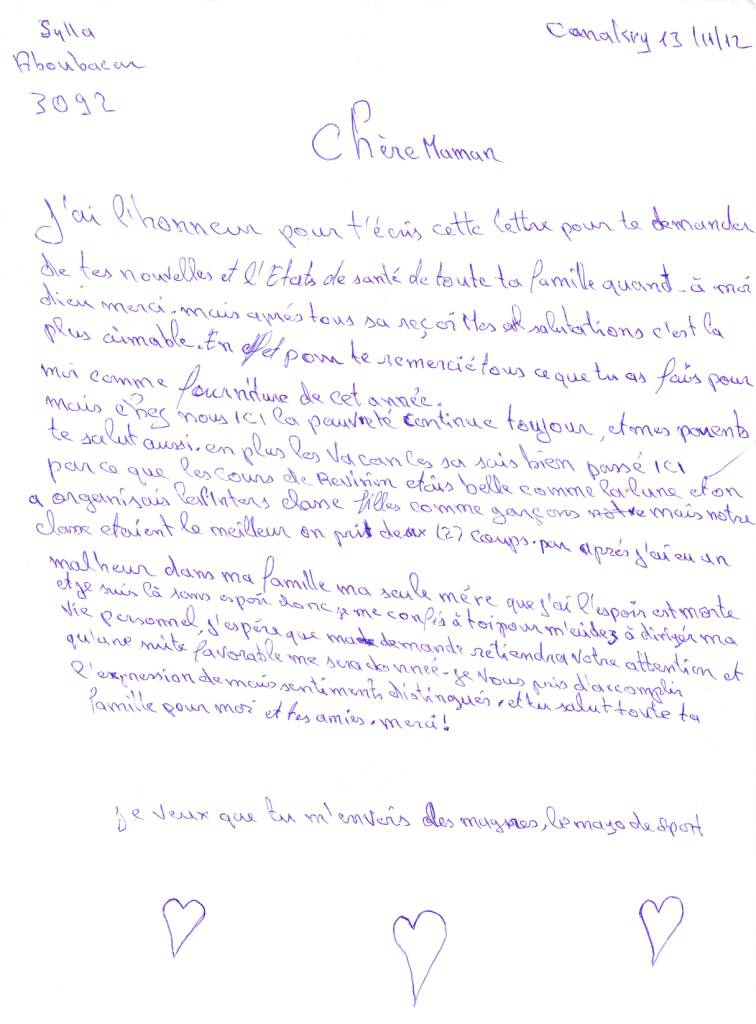 Sylla
Aboubacar
3092
Conakry 13/11/12
Chère Maman
J'ai l'honneur pour t'écris cette lettre pour te demander
de tes nouvelles et l'Etats de santé de toute ta famille quant-à moi
dieu merci. mais aprés tous sa reçoit Mes salutations c'est la
plus aimable. En effet pour te remercié tous ce que tu as fais pour
moi comme fourniture de cet année.
mais chez nous ICI la pauvreté continue toujour, et mes parents
te salut aussi. en plus les Vacances sa sais bien passé ICI
parce que les cours de Revision etais belle comme la lune et on
a organisais les Inters classe filles comme garçons mais notre
classe etaient le meilleur on prit deux (2) coups. par aprés j'ai eu un
malheur dans ma famille ma seule mére que j'ai l'espoir est morte
et je suis là sans espoir donc je me confis à toi pour m'aidez à dirigér ma
vie personnel, j'espére que ma demande retiendra votre attention et
qu'une suite favorable me sera donnée. je Vous pris d'accomplir
l'expression de mais sentiments distingués. et tu salut toute ta
famille pour moi et tes amies. merci!
je veux que tu m'envois des magnes, le mayo de sport